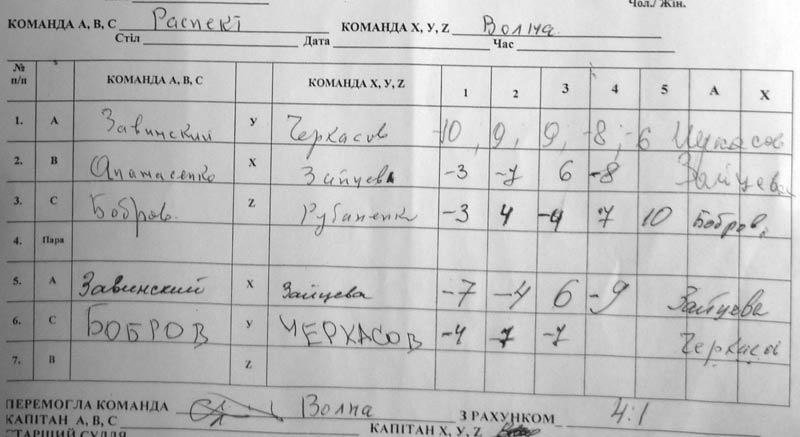 Чол./ Жін.
КОМАНДА А, В, С Распект КОМАНДА Х, У, Z Волна
Стіл Дата Час
№ п/п КОМАНДА А, В, С КОМАНДА Х, У, Z 1 2 3 4 5 А Х
1. А Завинский У Черкасов -10, 9, 9, -8, -6
2. В Апанасенко Х Зайцева -3 -7 6 -8 Зайцева
3. С Бобров. Z -3 4 -4 7 10 Бобров.
4. Пара
5. А Завинский Х Зайцева -7 -4 6 -9 Зайцева
6. С БОБРОВ У ЧЕРКАСОВ -4 7 -7 Черкасов
7. В Z
ПЕРЕМОГЛА КОМАНДА Волна З РАХУНКОМ 4:1
КАПІТАН А, В, С КАПІТАН Х, У, Z
СТАРШИЙ СУДДЯ